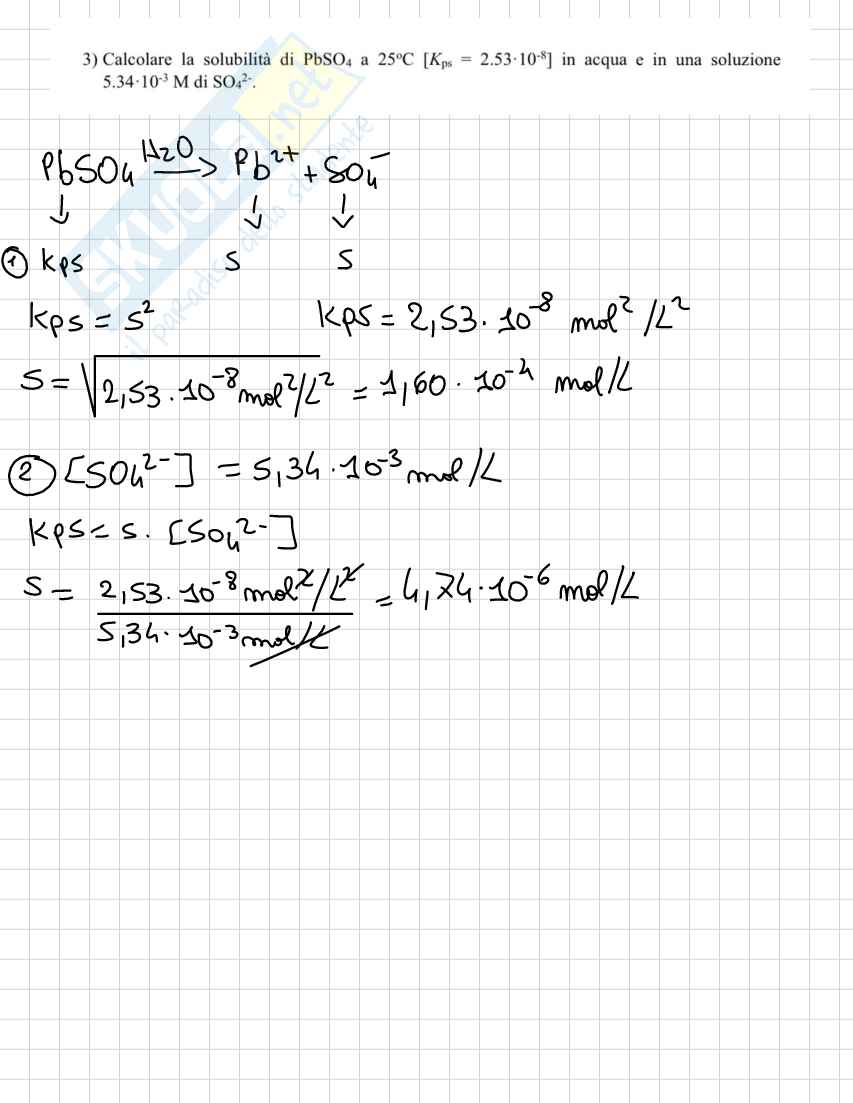 3) Calcolare la solubilità di PbSO₄ a 25°C [Kps = 2.53·10⁻⁸] in acqua e in una soluzione
5.34·10⁻³ M di SO₄²⁻.
SKUOLA.net
il paradiso dello studente
PbSO₄ H₂O → Pb²⁺ + SO₄⁻
↓ ↓ ↓
① Kps s s
Kps = s² Kps = 2,53·10⁻⁸ mol²/L²
s = √2,53·10⁻⁸ mol²/L² = 1,60·10⁻⁴ mol/L
② [SO₄²⁻] = 5,34·10⁻³ mol/L
Kps = s·[SO₄²⁻]
s = 2,53·10⁻⁸ mol²/L² = 4,74·10⁻⁶ mol/L
5,34·10⁻³ mol/L